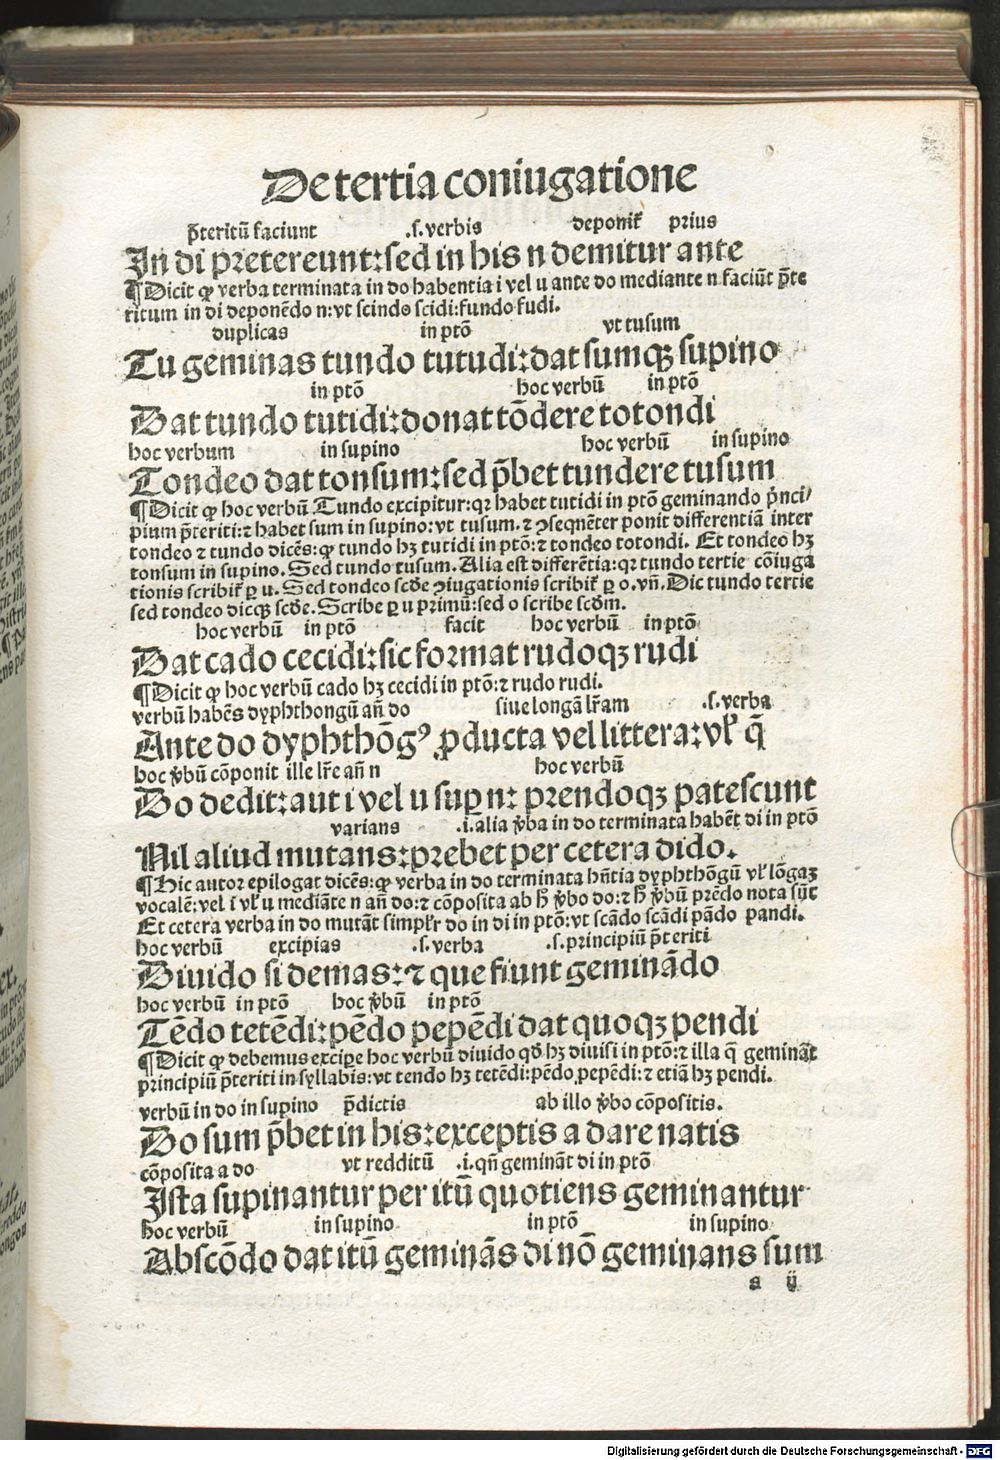 De tertia coniugatione
p̄teritū faciunt .ſ. verbis deponit᷑ prius
In di pꝛetereunt: ſed in his n demitur ante
¶ Dicit ꝙ verba terminata in do habentia i vel u ante do mediante n faciūt p̄te
ritum in di deponēdo n: vt ſcindo ſcidi: fundo fudi.
duplicas in ptō vt tuſum
Tu geminas tundo tutudi: dat ſumqꝫ ſupino
in ptō hoc verbū in ptō
Dat tundo tutidi: donat tōdere totondi
hoc verbum in ſupino hoc verbū in ſupino
Tondeo dat tonſum: ſed p̄bet tundere tuſum
¶ Dicit ꝙ hoc verbū Tundo excipitur: qꝛ habet tutidi in ptō geminando p̄nci/
pium p̄teriti: ⁊ habet ſum in ſupino: vt tuſum. ⁊ ꝯſeqn̄ter ponit differentiā inter
tondeo ⁊ tundo dicēs: ꝙ tundo hꝫ tutidi in ptō: ⁊ tondeo totondi. Et tondeo hꝫ
tonſum in ſupino. Sed tundo tuſum. Alia eſt differētia: qꝛ tundo tertie cōiuga
tionis ſcribit᷑ ꝑ u. Sed tondeo ſcd̄e ꝯiugationis ſcribit᷑ ꝑ o. vn̄. Dic tundo tertie
ſed tondeo dicqꝫ ſcd̄e. Scribe ꝑ u primū: ſed o ſcribe ſcd̄m.
hoc verbū in ptō facit hoc verbū in ptō
Dat cado cecidi: ſic foꝛmat rudoqꝫ rudi
¶ Dicit ꝙ hoc verbū cado hꝫ cecidi in ptō: ⁊ rudo rudi.
verbū habēs dyphthongū an̄ do ſiue longā lr̄am .ſ. verba
Ante do dyphthōgꝰ ꝓducta vel littera: vl̓ q̄
hoc v̄bū cōponit ille lr̄e an̄ n hoc verbū
Do dedit: aut i vel u ſuꝑ n: pꝛendoqꝫ pateſcunt
varians .i. alia v̄ba in do terminata habēt di in ptō
Nil aliud mutans: pꝛebet per cetera dido.
¶ Hic autor epilogat dicēs: ꝙ verba in do terminata hn̄tia dyphthōgū vl̓ lōgaꝫ
vocalē: vel i vl̓ u mediāte n an̄ do: ⁊ cōpoſita ab h̄ v̄bo do: ⁊ h̄ v̄bū pꝛēdo nota ſūt
Et cetera verba in do mutāt ſimpl̓r do in di in ptō: vt ſcādo ſcādi pādo pandi.
hoc verbū excipias .ſ. verba .ſ. principiū p̄teriti
Diuido ſi demas: ⁊ que fiunt geminādo
hoc verbū in ptō hoc v̄bū in ptō
Tēdo tetēdi: pēdo pepēdi dat quoqꝫ pendi
¶ Dicit ꝙ debemus exciꝑe hoc verbū diuido qd̄ hꝫ diuiſi in ptō: ⁊ illa q̄ gemināt
principiū p̄teriti in ſyllabis: vt tendo hꝫ tetēdi: pēdo pepēdi: ⁊ etiā hꝫ pendi.
verbū in do in ſupino p̄dictis ab illo v̄bo cōpoſitis.
Do ſum p̄bet in his: exceptis a dare natis
cōpoſita a do vt redditū .i. qn̄ gemināt di in ptō
Iſta ſupinantur per itū quotiens geminantur
hoc verbū in ſupino in ptō in ſupino
Abſcōdo dat itū geminās di nō geminans ſum
a ij
Digitalisierung gefördert durch die Deutsche Forschungsgemeinschaft - DFG